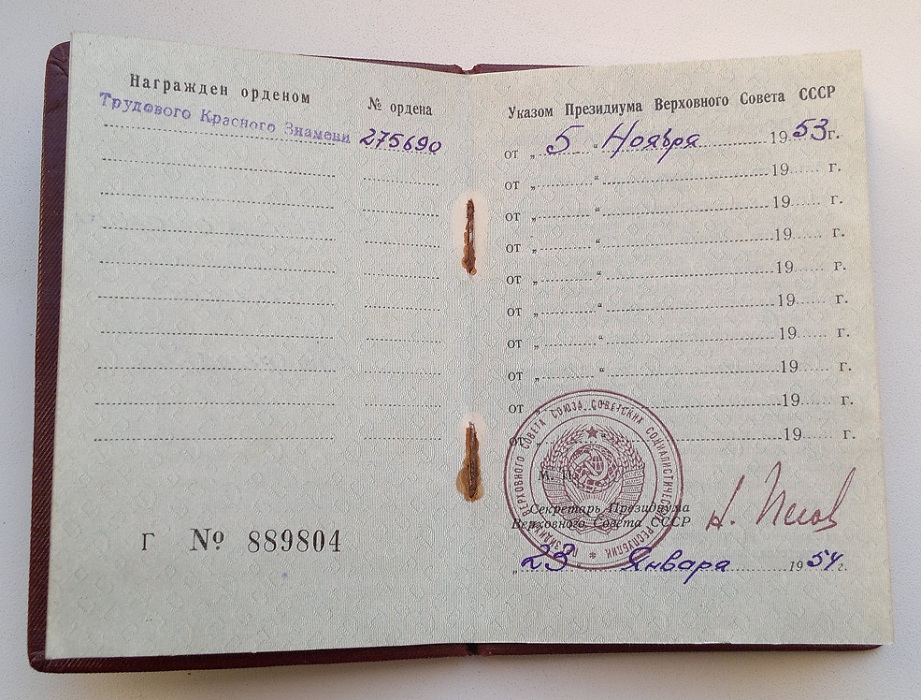 Награжден орденом
№ ордена
Трудового Красного Знамени 275690
Г № 889804
Указом Президиума Верховного Совета СССР
от „ 5 “ Ноября 1953г.
от „ “ 19 г.
от „ “ 19 г.
от „ “ 19 г.
от „ “ 19 г.
от „ “ 19 г.
от „ “ 19 г.
от „ “ 19 г.
от „ “ 19 г.
от „ “ 19 г.
ПРЕЗИДИУМ ВЕРХОВНОГО СОВЕТА СОЮЗА СОВЕТСКИХ СОЦИАЛИСТИЧЕСКИХ РЕСПУБЛИК
М. П.
Секретарь Президиума
Верховного Совета СССР
„ 23 “ Января 1954г.